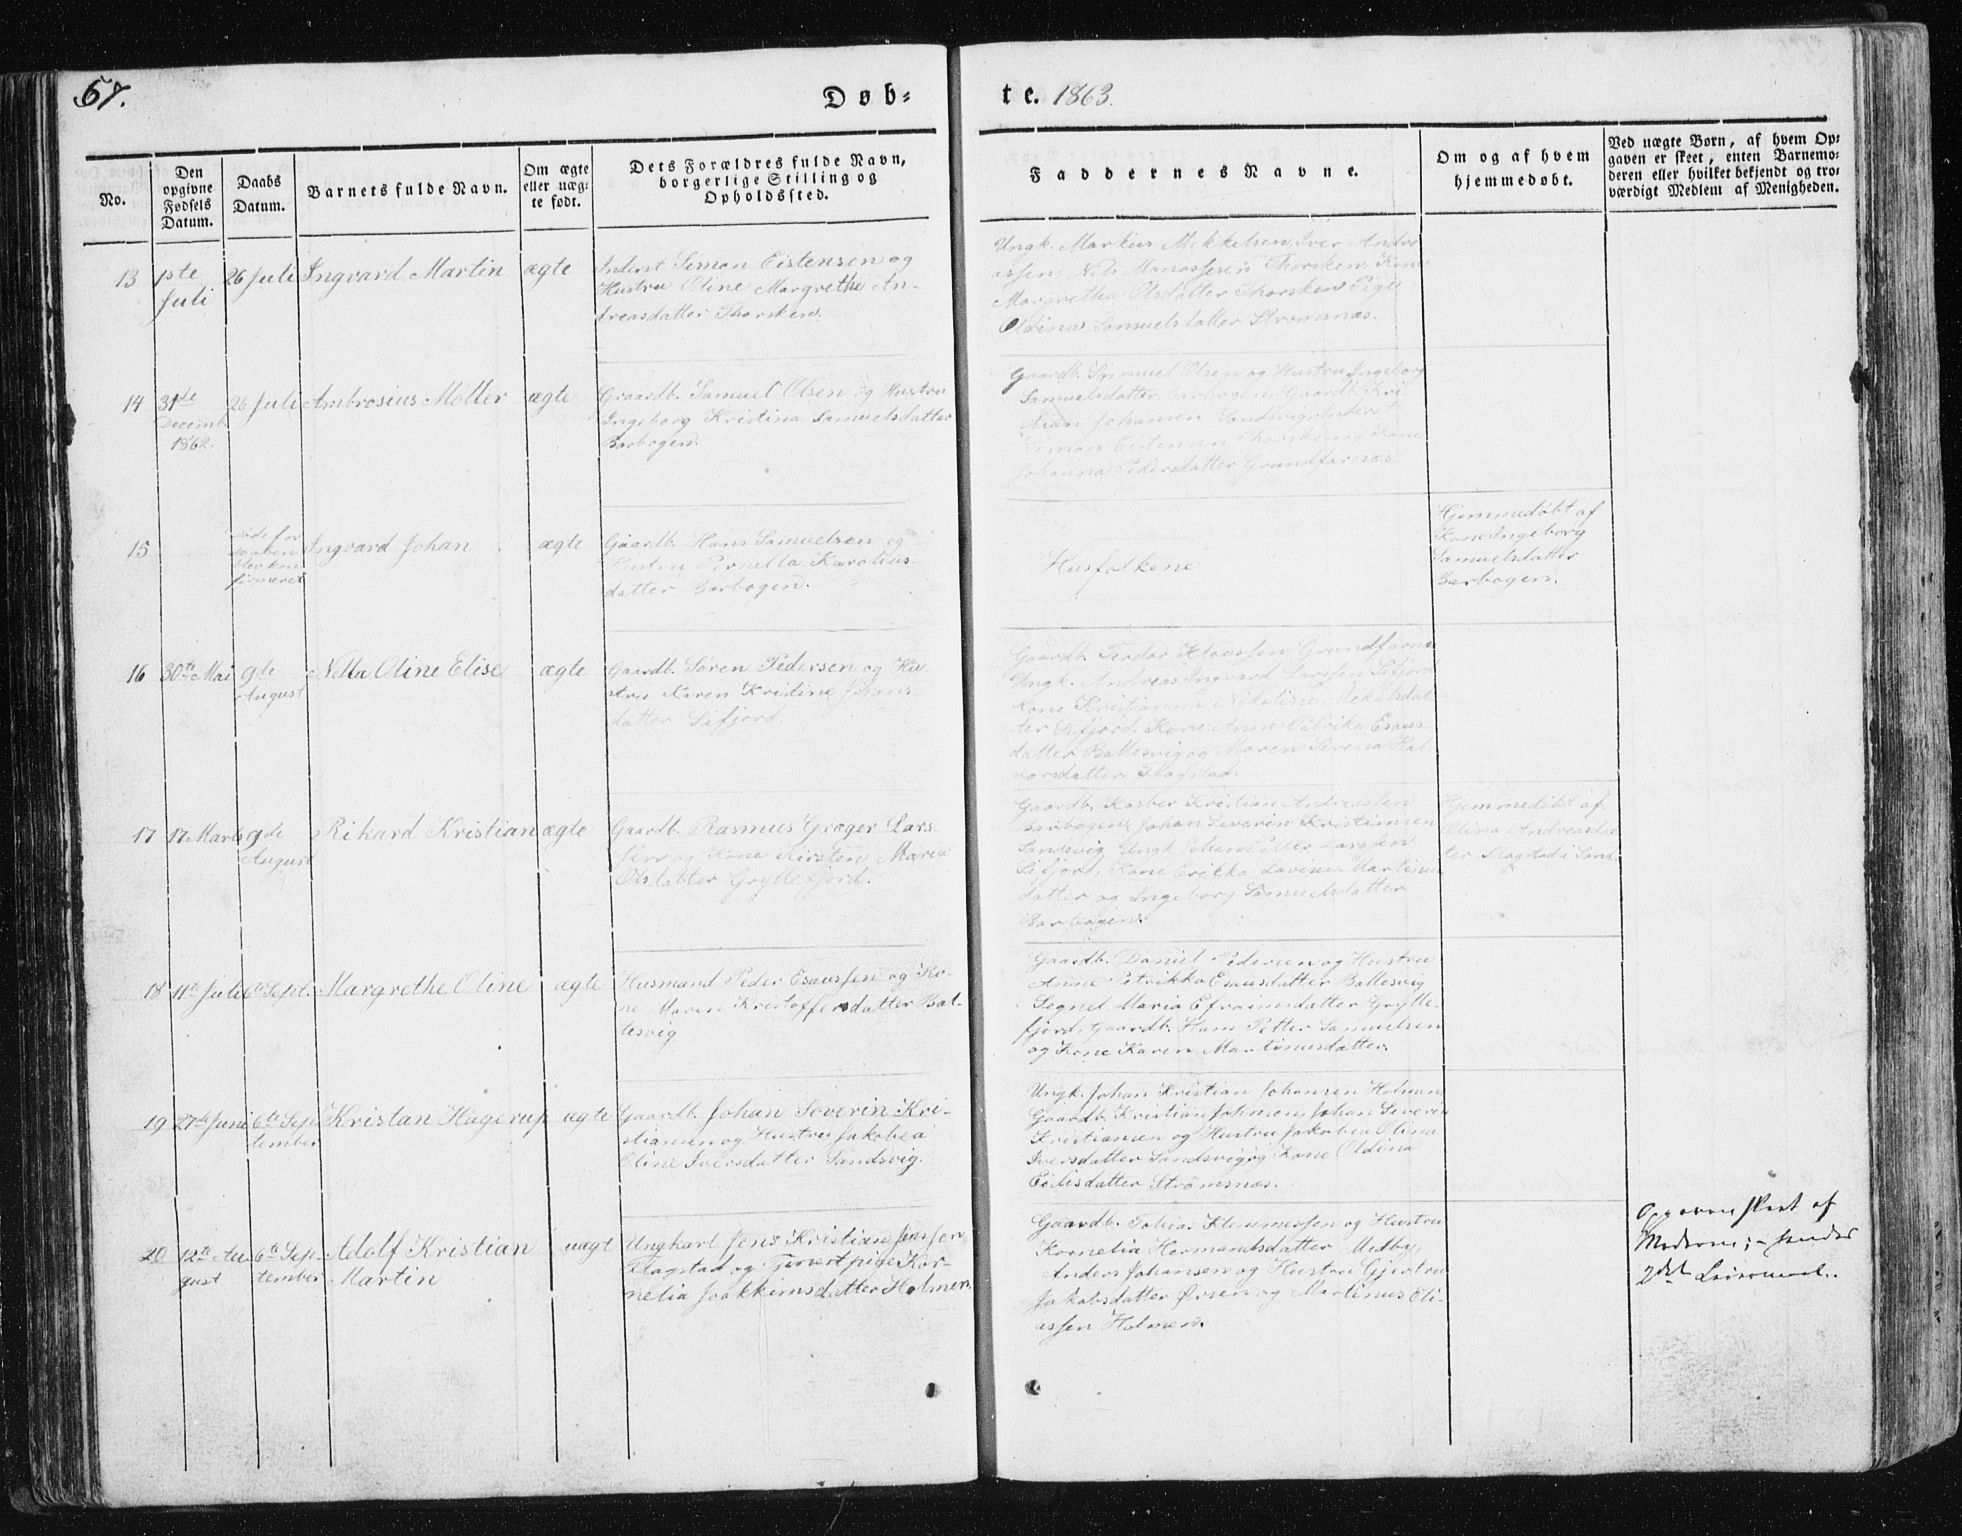 57.
Døb-
te. 1863.
No.
Den
opgivne
Fødsels
Datum.
Daabs
Datum.
Barnets fulde Navn.
Om ægte
eller uæg-
te født.
Dets Forældres fulde Navn,
borgerlige Stilling og
Opholdssted.
Faddernes Navne.
Om og af hvem
hjemmedøbt.
Ved uægte Børn, af hvem Op-
gaven er skeet, enten Barnemo-
deren eller hvilket bekjendt og tro-
værdigt Medlem af Menigheden.
13
1ste
Juli
26 Juli
Ingvard Martin
ægte
Inderst Simon Eistensen og
Hustru Oline Margrethe An-
dreasdatter Thorsken.
Ungk. Markus Mekkelsen, Iver Andre
assen, Nils Monassesen Thorsken, Kone
Margretha Olsdatter Thorsken Pige
Oldina Samuelsdatter Strømsnæs.
14
31te
Decemb.
1862.
26 Juli
Ambrosius Møller
ægte
Gaardb. Samuel Olsen og Hustru
Ingeborg Kristina Samuelsdatter
Barbogen.
Gaardb. Samuel Olsen og Hustru Ingeborg
Samuelsdatter Barbogen, Gaardb. Kri-
stian Johansen Sandsvig, Inderst
Simon Eistensen Thorsken og Kone
Johanna Pedersdatter Grundfarnæs.
15
blev kon
firmeret
Ingvard Johan
ægte
Gaardb. Hans Samuelsen og
Hustru Pernella Karolius-
datter Barbogen.
Husfolkene
Hjemmedøbt af
Kone Ingeborg
Samuelsdatter
Barbogen.
16
30te Mai
9de
August
Nella Oline Elise
ægte
Gaardb. Søren Pedersen og Hu
stru Karen Kristine Johans-
datter Sifjord.
Gaardb. Teodor Klaussen Grundfarnæs
Ungk. Andreas Ingvard Larssen Sifjord
Kone Kristianna Nikoline Mekalsdat
ter Sifjord, Kone Anne Petrika Esaus-
datter Ballesvig og Maren Serena Hal
vorsdatter Flagstad.
17
17 Marts
9de
August
Rikard Kristian
ægte
Gaardb. Rasmus Grøger Lars-
sen og Kone Kirsten Maria
Olsdatter Gryllefjord.
Gaardb. Kasber Kristian Andreassen
Barbogen, Johan Severin Kristiansen
Sandsvig, Ungk. Johan Petter Larssen
Sifjord, Kone Erikka Lovina Martinus
datter og Ingeborg Samuelsdatter
Barbogen.
Hjemmedøbt af
Olina Andreasdat
ter Flagstad i Sand-
18
11te Juli
6te Sept.
Margrethe Oline
ægte
Husmand Peder Esaussen og Ko-
ne Maren Kristoffersdatter Bal-
lesvig
Gaardb. Daniel Pedersen og Hustru
Anne Petrikka Esausdatter Ballesvig
Segnel Maria Efraimsdatter Grylle-
fjord, Gaardb. Hans Petter Samuelsen
og Kone Karen Martinusdatter.
19
27de Juni
6te Sep
tember
Kristan Hagerup
ægte
Gaardb. Johan Severin Kri-
stiansen og Hustru Jakobea
Oline Iversdatter Sandsvig.
Ungk. Johan Kristian Johansen Holmen,
Gaardb. Kristian Johnsen, Johan Severin
Kristiansen og Hustru Jakobea Olina
Iversdatter Sandsvig og Kone Oldina
Eidisdatter Strømsnæs.
20
12te Au
gust
6te Sep-
tember
Adolf Kristian
Martin
uægt
Ungkarl Jens Kristian Jensen
Flagstad og Tjenestpige Kor-
nelia Joakkimsdatter Holmen.
Gaardb. Tobias Klemmessen og Hustru
Kornelia Hermandsdatter Medby,
Anders Johansen og Hustru Gjertru
Jakobsdatter Ørsen og Martinus Eli-
assen Holmen.
Opgaven skeet af
Moderen; – hendes
2det Leiermaal.